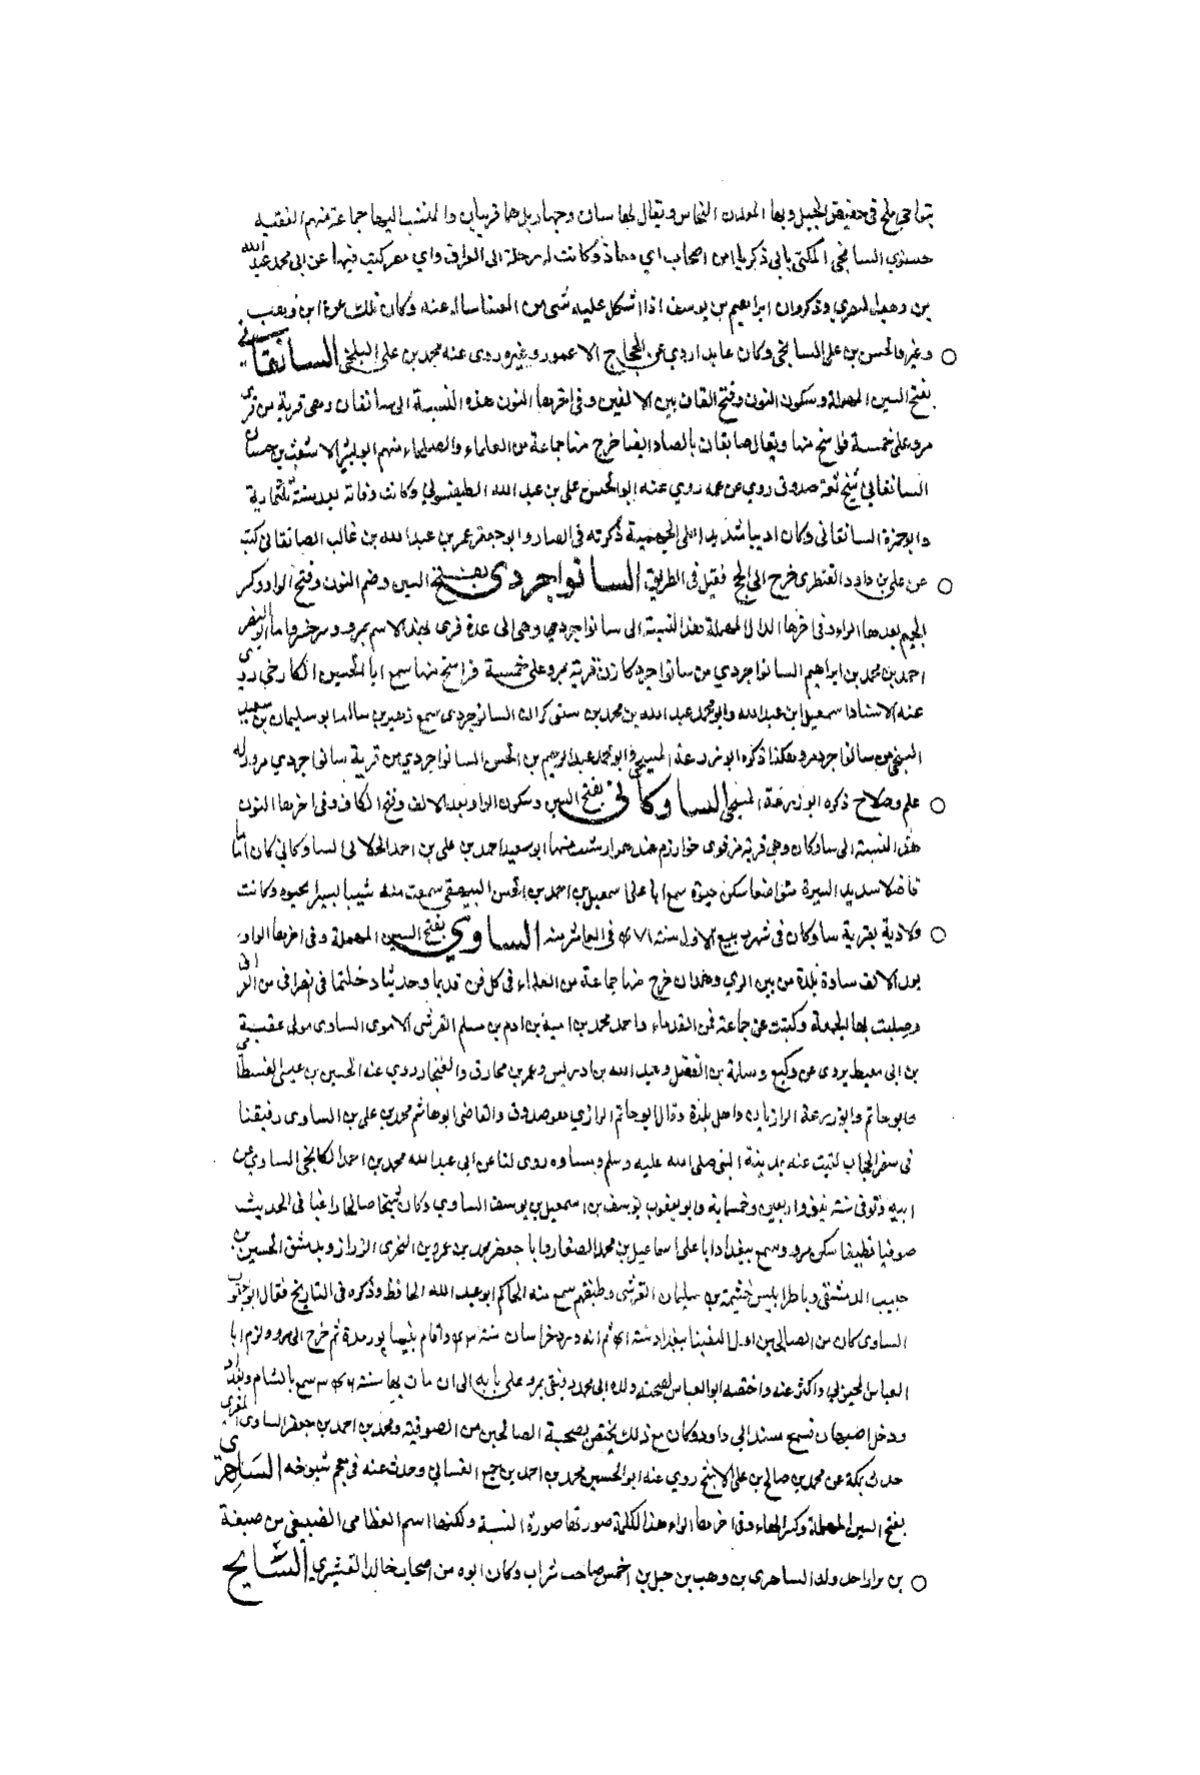 بنواحي بلخ في حضيض الجبل وبها المعدن النحاس ويقال لها سان وجهاريك هما قريتان والمنتسب اليها جماعة منهم الفقيه
السانجي المكنى بابي زكريا من اصحاب ابي معاذ وكانت له رحلة الى العراق والى مصر كتب فيها عن ابي محمد عبد الله
بن وهب المصري وذكروا ان ابراهيم بن يوسف اذا اشكل عليه شي من سأله عنه وكان ذلك عن ابن وهب
وغيره الحسن بن علي السانجي وكان عابدا روى عن الحجاج الاعور وغيره روى عنه محمد بن علي البلخي السانقاني
بفتح السين المهملة وسكون النون وفتح القاف بين الالفين وفي اخرها النون هذه النسبة الى سانقان وهي قرية من قرى
مرو على خمسة فراسخ منها ويقال صانقان بالصاد ايضا خرج منها جماعة من العلماء والصلحاء منهم ابو بشر الاشعث بن حسان
السانقاني شيخ ثقة صدوق روى عن عمه روى عنه ابو الحسن علي بن عبد الله الطيسفوني وكانت وفاته بعد سنة ثلثماية
وابو حمزة السانقاني وكان اديبا شديدا على الجهمية ذكرته في الصاد وابو جعفر عمر بن عبد الله بن غالب الصانقاني كتب
عن علي بن داود القنطري خرج الى الحج فقتل في الطريق السانواجردي بفتح السين وضم النون وفتح الواو وكسر
الجيم بعدها الراء وفي اخرها الدال المهملة هذا النسبة الى سانواجرد وهي الى عدة قرى بهذا الاسم بمرو وسرخس واما ابو النضر
احمد بن محمد بن ابراهيم السانواجردي من سانواجرد كازن قرية بمرو على خمسة فراسخ منها سمع ابا الحسين الكارخي روى
عنه الاستاذ اسمعيل ابن عبد الله وابو محمد عبد الله بن محمد بن السانوجردي سمع زهير بن سالم ابو سليمان بن سعيد
من سانواجرد مرو هكذا ذكره ابو زرعة السنجي وابو محمد عبد الرحيم بن الحسن السانواجردي من قرية سانواجردي مرو له
علم وصلاح ذكره ابو زرعة السنجي الساوكاني بفتح السين وسكون الواو بعد الالف وفتح الكاف وفي اخرها النون
هذه النسبة الى ساوكان وهي قرية من قرى خوارزم عند منها ابو سعيد احمد بن علي بن احمد الساوكاني كان اماما
فاضلا سديد السيرة متواضعا سكن خيوة سمع ابا علي اسمعيل بن احمد بن الحسن البيهقي سمعت منه شيبا يسيرا بخيوه وكانت
ولادته بقرية ساوكان في شهر ربيع الاول سنة في العاشر منه الساوي بفتح السين المهملة وفي اخرها الواو
بعد الالف ساوة بلدة من بين الري وهمدان خرج منها جماعة من العلماء في كل فن قديما وحديثا دخلتها في انصرافي من العراق
وصليت بها الجمعة وكتبت عن جماعة فمن القدماء واحمد محمد بن امية بن ادم بن مسلم القرشي الاموي الساوي مولى عقبة
بن ابي معيط يروي عن وكيع وسلمة بن الفضل وعبد الله بن ادريس وعمر بن مخارق والغنجار روى عنه الحسين بن عيسى القسطامي
وابو حاتم وابو زرعة الرازيان واهل بلده وقال ابو حاتم الرازي هو صدوق والقاضي ابو هاشم محمد بن علي بن الساوي رفيقنا
في سفر الحجاز كتبت عنه بمدينة النبي صلى الله عليه وسلم وبساوه روى لنا عن ابي عبد الله محمد بن احمد الكامخي الساوي عن
ابيه وتوفي سنة نيف واربعين وخمسماية وابو يعقوب يوسف بن اسمعيل بن يوسف الساوي وكان شيخا صالحا راغبا في الحديث
صوفيا نظيفا سكن مرو وسمع ببغداد ابا علي اسماعيل بن محمد الصفار وابا جعفر محمد بن عمرو بن البختري الرزاز وبدمشق الحسين بن
حبيب الدمشقي وباطرابلس خيثمة بن سليمان القرشي وطبقتهم سمع منه الحاكم ابو عبد الله الحافظ وذكره في التاريخ فقال ابو يعقوب
الساوي كان من الصالحين اول التقينا ببغداد سنة ثم انه ورد خراسان سنة واقام بنيسابور مدة ثم خرج الى مرو ولزم ابا
العباس المحبوبي واكثر عنه واختصه ابو العباس لصحبة ولده ابي محمد فبقي بمرو على بابه الى ان مات بها سنة سمع بالشام وبغداد
ودخل اصبهان فسمع مسند ابي داود وكان مع ذلك يختص بصحبة الصالحين من الصوفية ومحمد بن احمد بن جعفر الساوي المقري
حدث بمكة عن محمد بن صالح بن علي الاشج روى عنه ابو الحسين محمد بن احمد بن جميع الغساني وحدث عنه في معجم شيوخه الساهري
بفتح السين المهملة وكسر الهاء وفي اخرها الراء هذا الكلمة صورتها صورة النسبة ولكنها اسم القطامي الضبيعي من ضبيعة
بن ولد الساهري بن وهب بن بن احمس صاحب شراب وكان ابوه من اصحاب خالد القشيري السايح